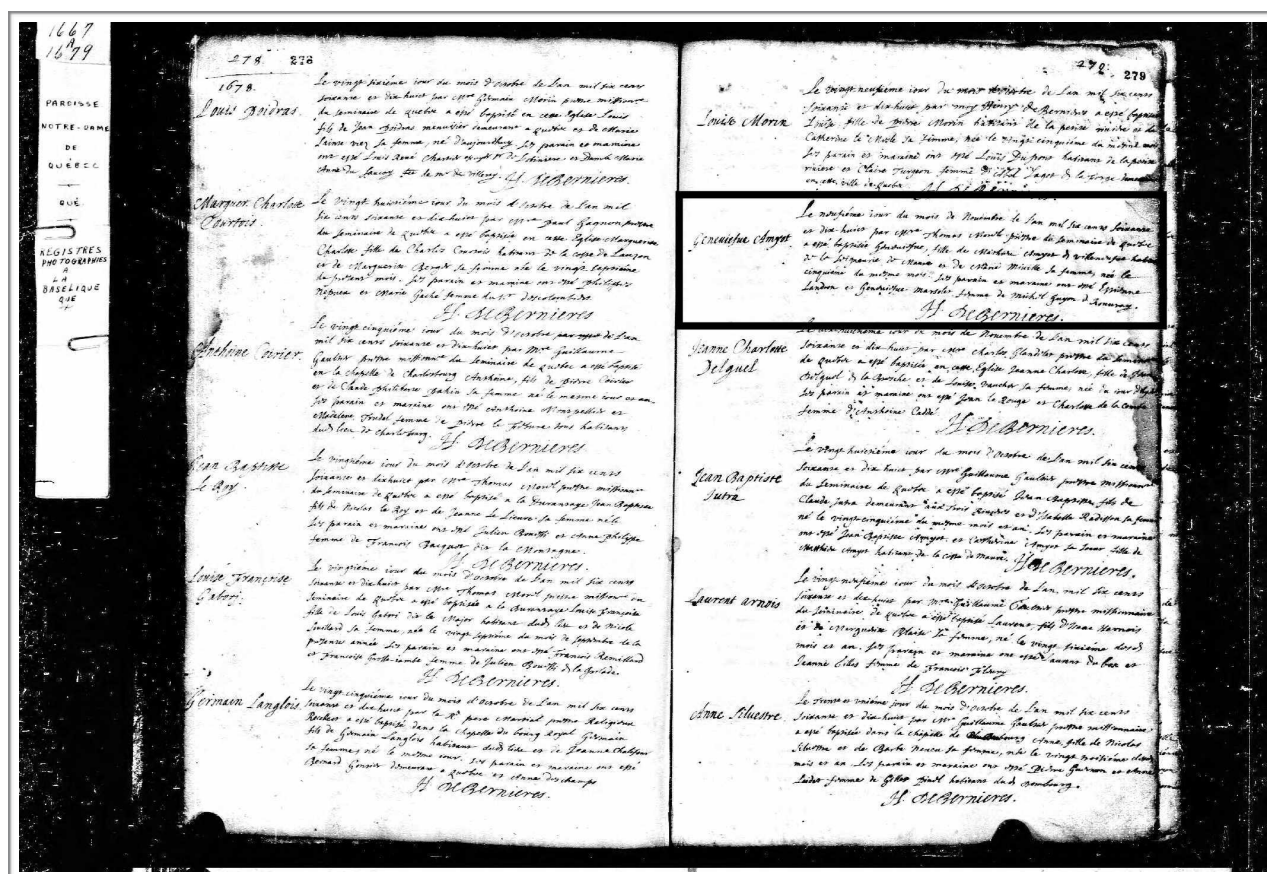 1667
A
1679
PAROISSE
NOTRE-DAME
DE
QUÉBEC
QUÉ
REGISTRES
PHOTOGRAPHIES
A
LA
BASELIQUE
QUE
278 278
1678.
Louis Boidras.
Le vingt sixième iour du mois d'octobre de l'an mil six cens
soixante et dix huict par Mre Germain Morin prestre missionre
du seminaire de Quebec a esté baptisé en cette Eglise Louis
fils de Jean Boidras meusnier demeurant a Quebec et de Marie
sa femme, né d'aujourdhuy. Ses parain et mamine
ont esté Louis René Chartier de Lotbiniere, et Damlle Marie
Anne du de Mr de Villeray.
H. DeBernieres.
Marguer. Charlotte
Courtois.
Le vingt huictième iour du mois d'octobre de l'an mil
six cens soixante et dix huict par Mre Paul Gagnon prestre
du Seminaire de Quebec a esté baptisée en cette Eglise Marguerite
Charlotte fille de Charles Courtois habitant de la coste de Lauzon
et de Marguerite Berard sa femme née le vingt septiéme
du presant mois. Ses parain et mamine ont esté Philippes
Nepveu et Marie Gaché femme du Sr Descolombiers
H. DeBernieres.
Anthoine Coirier.
Le vingt cinquième iour du mois d'octobre de l'an
mil six cens soixante et dix huict par Mre Guillaume
Gaultier prestre missionre du Seminaire de Quebec a esté baptisé
en la chapelle de Charlesbourg Anthoine, fils de Pierre Coirier
et de Claude Philiberte Pahin sa femme né le mesme iour et an.
Ses parain et maraine ont esté Anthoine Montpellier et
Madelene Trudel femme de Pierre le Febvre tous habitants
dudt lieu de Charlebourg.
H. DeBernieres.
Jean Baptiste
le Roy
Le vingtième iour du mois d'octobre de l'an mil six cens
soixante et dix huict par Mre Thomas Morel prestre missionre
du seminaire de Quebec a esté baptisé a la Durantaye Jean Baptiste
fils de Nicolas le Roy et de Jeanne le Lievre sa femme né le
Ses parain et maraine ont esté Julien Bouffe et Anne Philippe
femme de Francois Bacquet dit la Montagne.
H. DeBernieres.
Louise Françoise
Gabory.
Le vingtième iour du mois d'octobre de l'an mil six cens
soixante et dix huict par Mre Thomas Morel prestre missionre du
seminaire de Quebec a esté baptisée a la Durantaye Louise Françoise
fille de Louis Gabori dit le Major habitant dudt lieu et de Nicole
Souillard sa femme, née le vingt septième du mois de Septembre de la
presente année Ses parain et maraine ont esté François Remillard
et Francoise Grossejambe femme de Julien Bouffe
H. DeBernieres.
Germain Langlois.
Le vingt cinquième iour du mois d'octobre de l'an mil six cens
soixante et dix huict par le R. pere Martial prestre Religieux
Recolect a esté baptisé dans la chapelle du bourg Royal Germain
fils de Germain Langlois habitant dudt lieu et de Jeanne Chalifour
sa femme, né le mesme iour, Ses parain et maraine ont esté
Bernard Gontier demeurant a Quebec et Anne Deschamps
H. DeBernieres.
279. 279
Louise Morin
Le vingt neufième iour du mois d'octobre de l'an mil six cens
soixante et dix huict par moy Henry de Bernieres a esté baptisée
Louise fille de Pierre Morin habitant de la petite riviere et de
Catherine le Mesle sa femme, née le vingt cinquième du mesme mois
Ses parain et maraine ont esté Louis Dupont habitant de la petite
riviere et Claire Turgeon femme
en cette ville de Quebec
H. DeBernieres
Geneviefve Amyot.
Le neufième iour du mois de Novembre de l'an mil six cens soixante
et dix huict par Mre Thomas Morel prestre du seminaire de Quebec
a esté baptisée Geneviefve, fille de Mathieu Amyot de Villeneufve habitant
de la Seigneurie de Maure et de Marie Miville sa femme, née le
cinquième du mesme mois. Ses parain et maraine ont esté Estienne
Landron et Geneviefve Marsolet femme de Michel Guyon de Rouvray.
H. DeBernieres.
Jeanne Charlotte
Delguel
Le dix huictième iour du mois de Novembre de l'an mil six cens
soixante et dix huict par Mre Charles Glandelet prestre du seminaire
de Quebec a esté baptisée en cette Eglise Jeanne Charlotte, fille de Jean
Delguel dt la Brosche et de Louise Faucher sa femme, née un iour d'hyer
Ses parain et maraine ont esté Jean le Rouge et Charlotte de la Combe
femme d'Anthoine Caddé.
H. DeBernieres.
Jean Baptiste
Jutra
Le vingt huictième iour du mois d'octobre de l'an mil six cens
soixante et dix huict par Mre Guillaume Gaultier prestre missionre
du Seminaire de Quebec a esté baptisé Jean Baptiste fils de
Claude Jutra demeurant aux trois Rivieres et d'Isabelle Radisson sa femme
né le vingt cinquième du mesme mois et an. Ses parain et maraine
ont esté Jean Baptiste Amyot, et Catherine Amyot sa soeur fille de
Matthieu Amyot habitant de la coste de Maure.
H. DeBernieres.
Laurent Arnois
Le vingt neufième iour du mois d'octobre de l'an mil six cens
soixante et dix huict par Mre Guillaume Gaultier prestre missionnaire
du Seminaire de Quebec a esté baptisé Laurent, fils d'Isaac Harnois
et de Marguerite Blaise sa femme, né le vingt sixième desdt
mois et an. Ses parain et maraine ont esté Laurans du bos et
Jeanne Gilles femme de Francois Fleury
H. DeBernieres.
Anne Silvestre.
Le trente et unième iour du mois d'octobre de l'an mil six cens
soixante et dix huict par Mre Guillaume Gaultier prestre missionnaire
a esté baptisée dans la chapelle de Anne, fille de Nicolas
Silvestre et de Barbe Neveu sa femme, née le vingt neufième desdt
mois et an. Ses parain et maraine ont esté Pierre et Anne
femme de Gilles Pinel habitant dudt
H. DeBernieres.